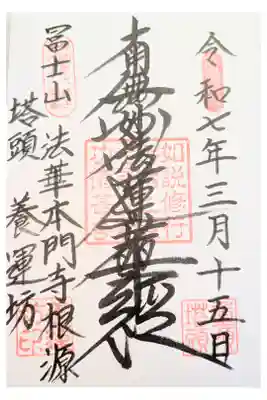 令和七年三月十五日
南無妙法蓮華経
如説修行
冨士山 法華本門寺根源
塔頭 養運坊